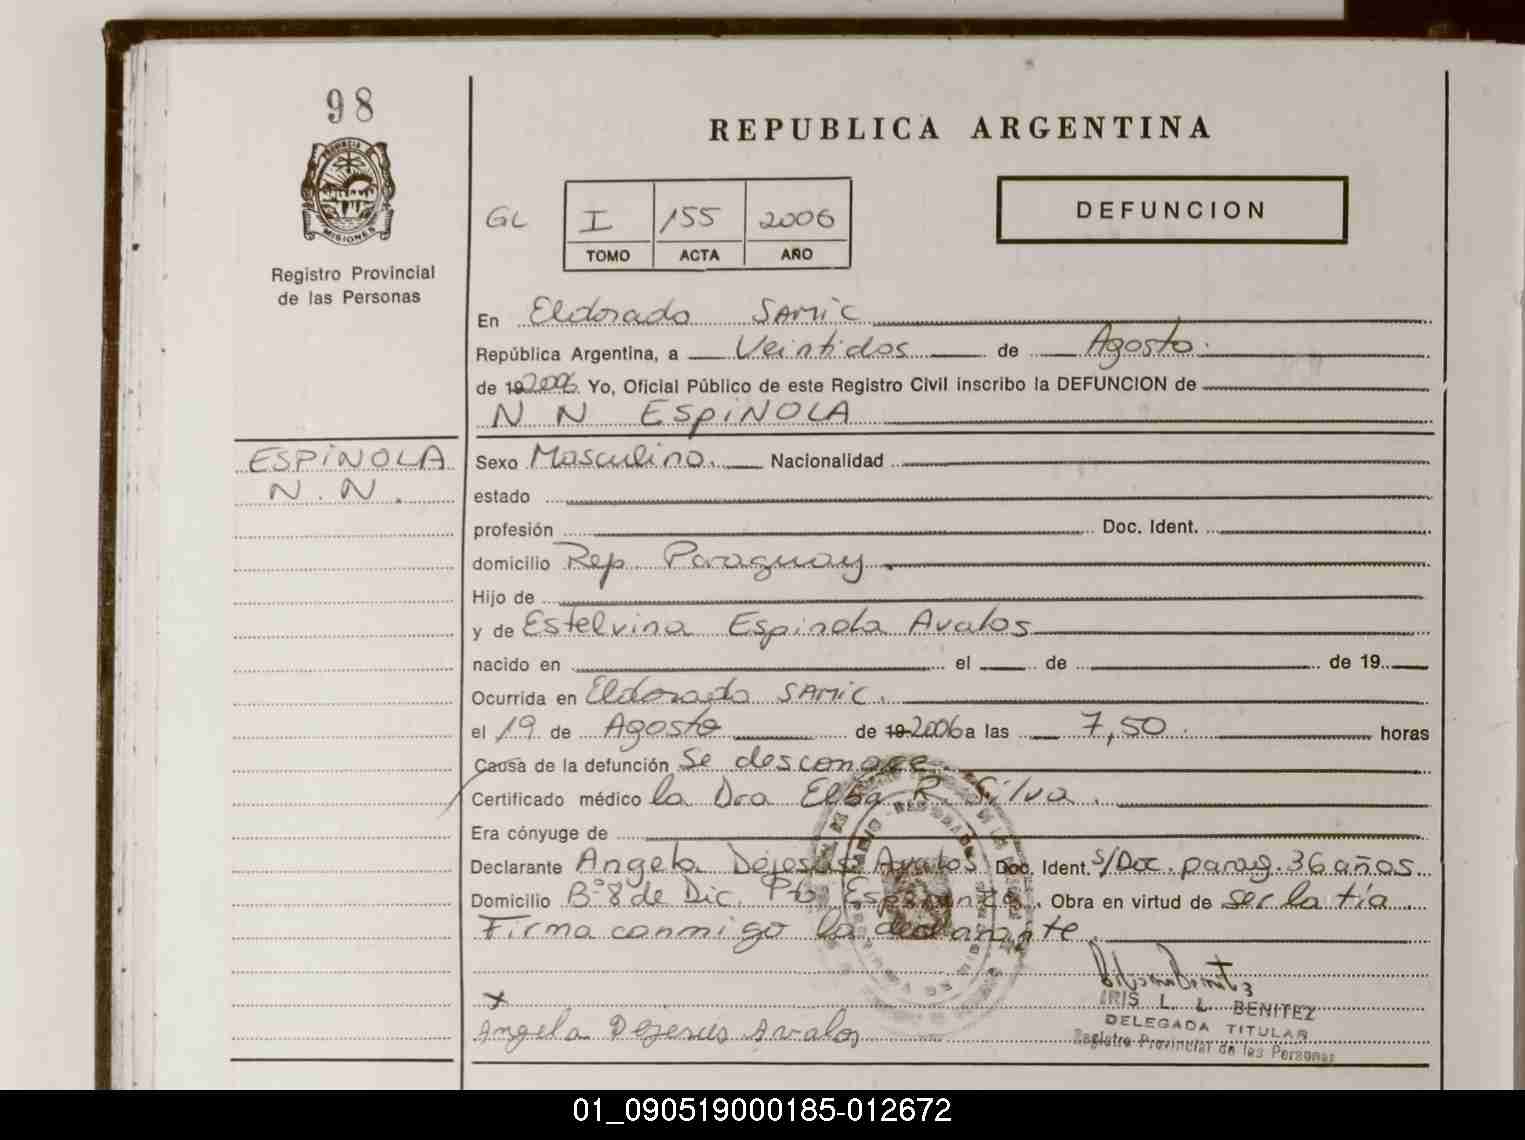 98
PROVINCIA DE
MISIONES
Registro Provincial
de las Personas
REPUBLICA ARGENTINA
GL I 155 2006
TOMO ACTA AÑO
DEFUNCION
En Eldorado SAMIC
República Argentina, a Veintidos de Agosto.
de 19 2006. Yo, Oficial Público de este Registro Civil inscribo la DEFUNCION de
N N ESPINOLA
ESPINOLA
N. N.
Sexo Masculino. Nacionalidad
estado
profesión Doc. Ident.
domicilio Rep. Paraguay.
Hijo de
y de Estelvina Espinola Avalos
nacido en el de de 19
Ocurrida en Eldorado SAMIC.
el 19 de Agosto de 19 2006 a las 7,50. horas
Causa de la defunción Se desconoce.
Certificado médico la Dra Elba R. Silva.
Era cónyuge de
Declarante Angela Dejesus Avalos Doc. Ident. s/Doc. parag. 36 años
Domicilio B° 8 de Dic. Pto Esperanza. Obra en virtud de ser la tía.
Firma conmigo la declarante.
x
Angela Dejesus Avalos
IRIS L. L. BENITEZ
DELEGADA TITULAR
Registro Provincial de las Personas
01_090519000185-012672